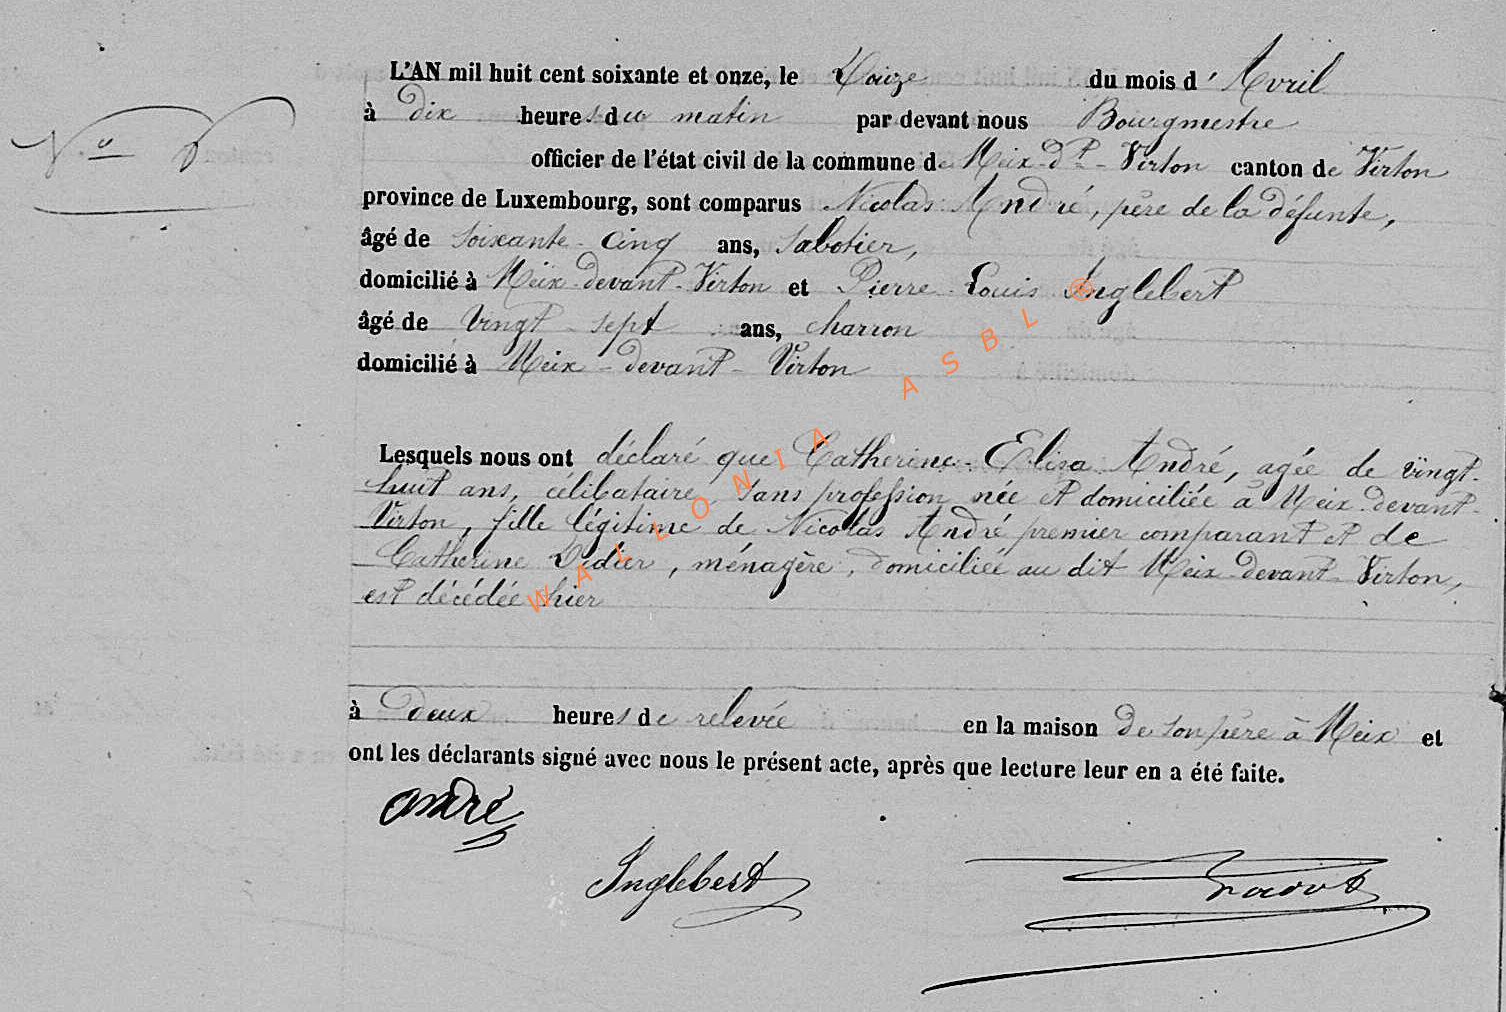 L'AN mil huit cent soixante et onze, le du mois d'Avril
à dix heures du matin par devant nous Bourgmestre
N° 6
officier de l'état civil de la commune de Meix-dt-Virton canton de Virton
province de Luxembourg, sont comparus Nicolas André, père de la défunte,
âgé de soixante-cinq ans, sabotier,
domicilié à Meix-devant-Virton et Pierre Louis Inglebert
âgé de vingt-sept ans, charron
domicilié à Meix-devant-Virton
Lesquels nous ont déclaré que Catherine-Elisa André, agée de vingt-
huit ans, célibataire, sans profession née et domiciliée à Meix-devant-
Virton, fille légitime de Nicolas André premier comparant et de
Catherine Didier, ménagère, domiciliée au dit Meix-devant-Virton,
est décédée hier
à deux heures de relevée en la maison de son père à Meix et
ont les déclarants signé avec nous le présent acte, après que lecture leur en a été faite.
andré
Inglebert
WALLONIA ASBL ®